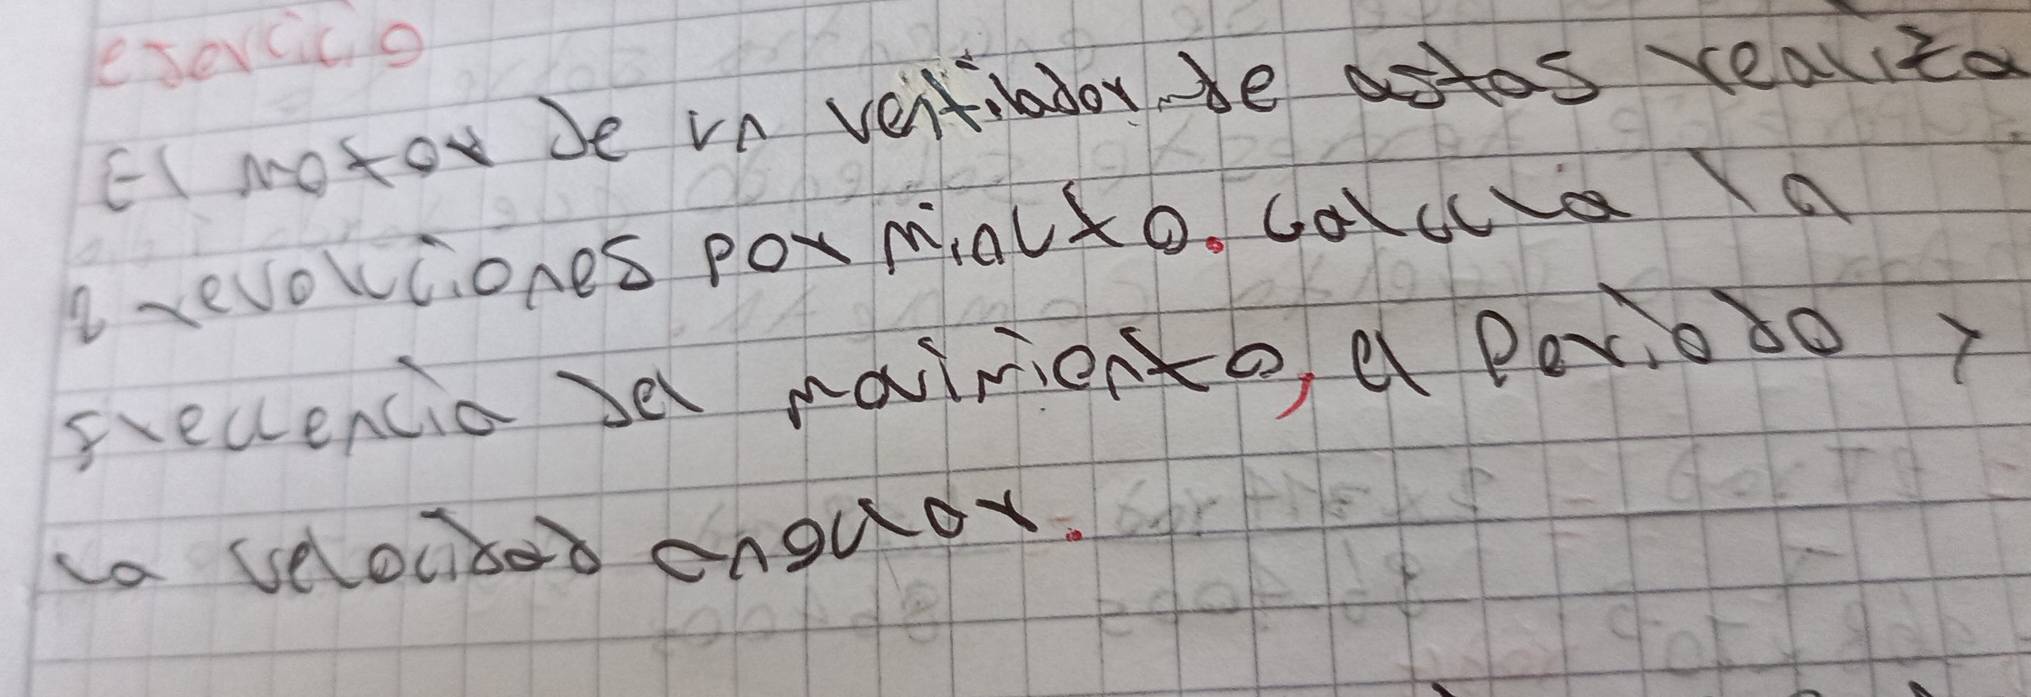 ejercicio
El motor de un ventilador de astas realiza
2 revoluciones por minuto. Calcula la
frecuencia del movimiento, el Periodo y
la velocidad angular.